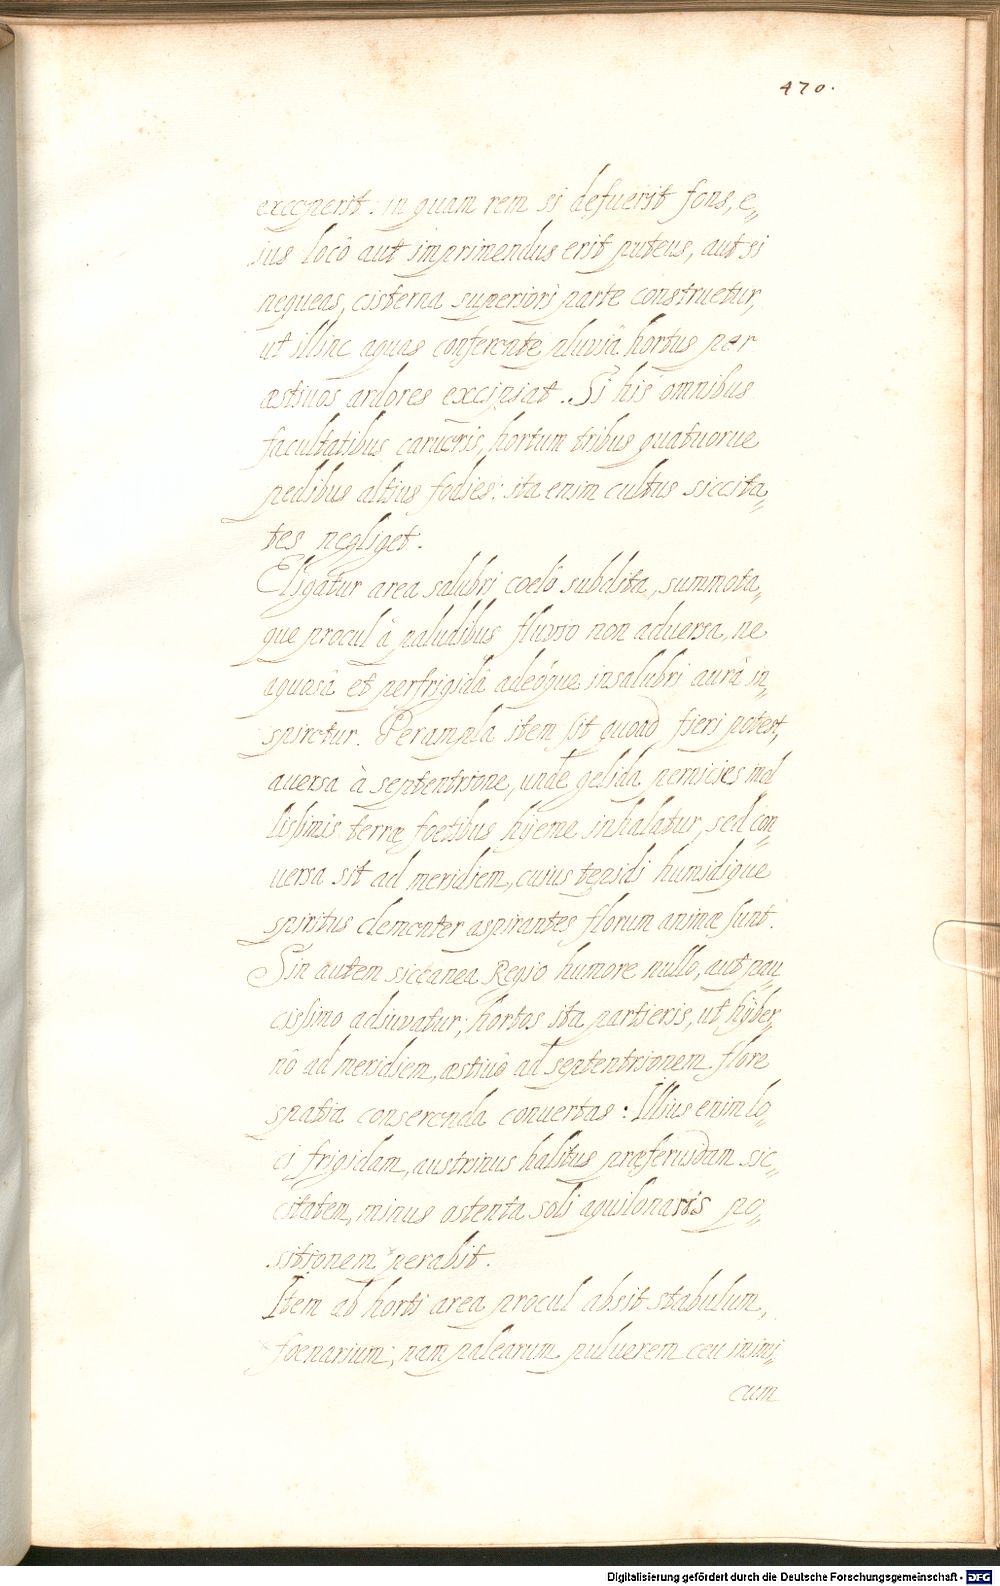 470.
exceperit. in quam rem si defuerit fons, e„
ius locô aut imprimendus erit puteus, aut si
nequeas, cisterna superiori parte construetur,
ut illinc aquas conferente pluviâ hortus per
æstiuos ardores excipiat. Si his omnibus
facultatibus carueris, hortum tribus quatuorue
pedibus altius fodies: ita enim cultus siccita„
tes negliget.
Eligatur area salubri coelô subdita, summota„
que procul à paludibus fluvio non adversa, ne
aquasâ et perfrigidâ adeóque insalubri aurâ in„
spiretur. Perampla item sit quoad fieri potest,
auersa à septentrione, unde gelida pernicies mol
lißimis terræ foetibus hÿeme inhalatur, sed con„
uersa sit ad meridiem, cuius tepidi humidique
spiritus clementer aspirantes florum animæ sunt.
Sin autem siccanea Regio humore nullo, aut pau
cißimo adiuvatur; hortos ita partieris, ut hÿber„
nô ad meridiem, æstiuô ad septentrionem flore
spatia conserenda conuertas: Illius enim lo„
ci frigidam, austrinus halitus præferuidam sic„
citatem, minus ostenta soli aquilonaris po„
sitionem perabit.
Item ab horti area procul absit stabulum,
foenarium; nam palearum puluerem ceu inimi„
cum
Digitalisierung gefördert durch die Deutsche Forschungsgemeinschaft - DFG